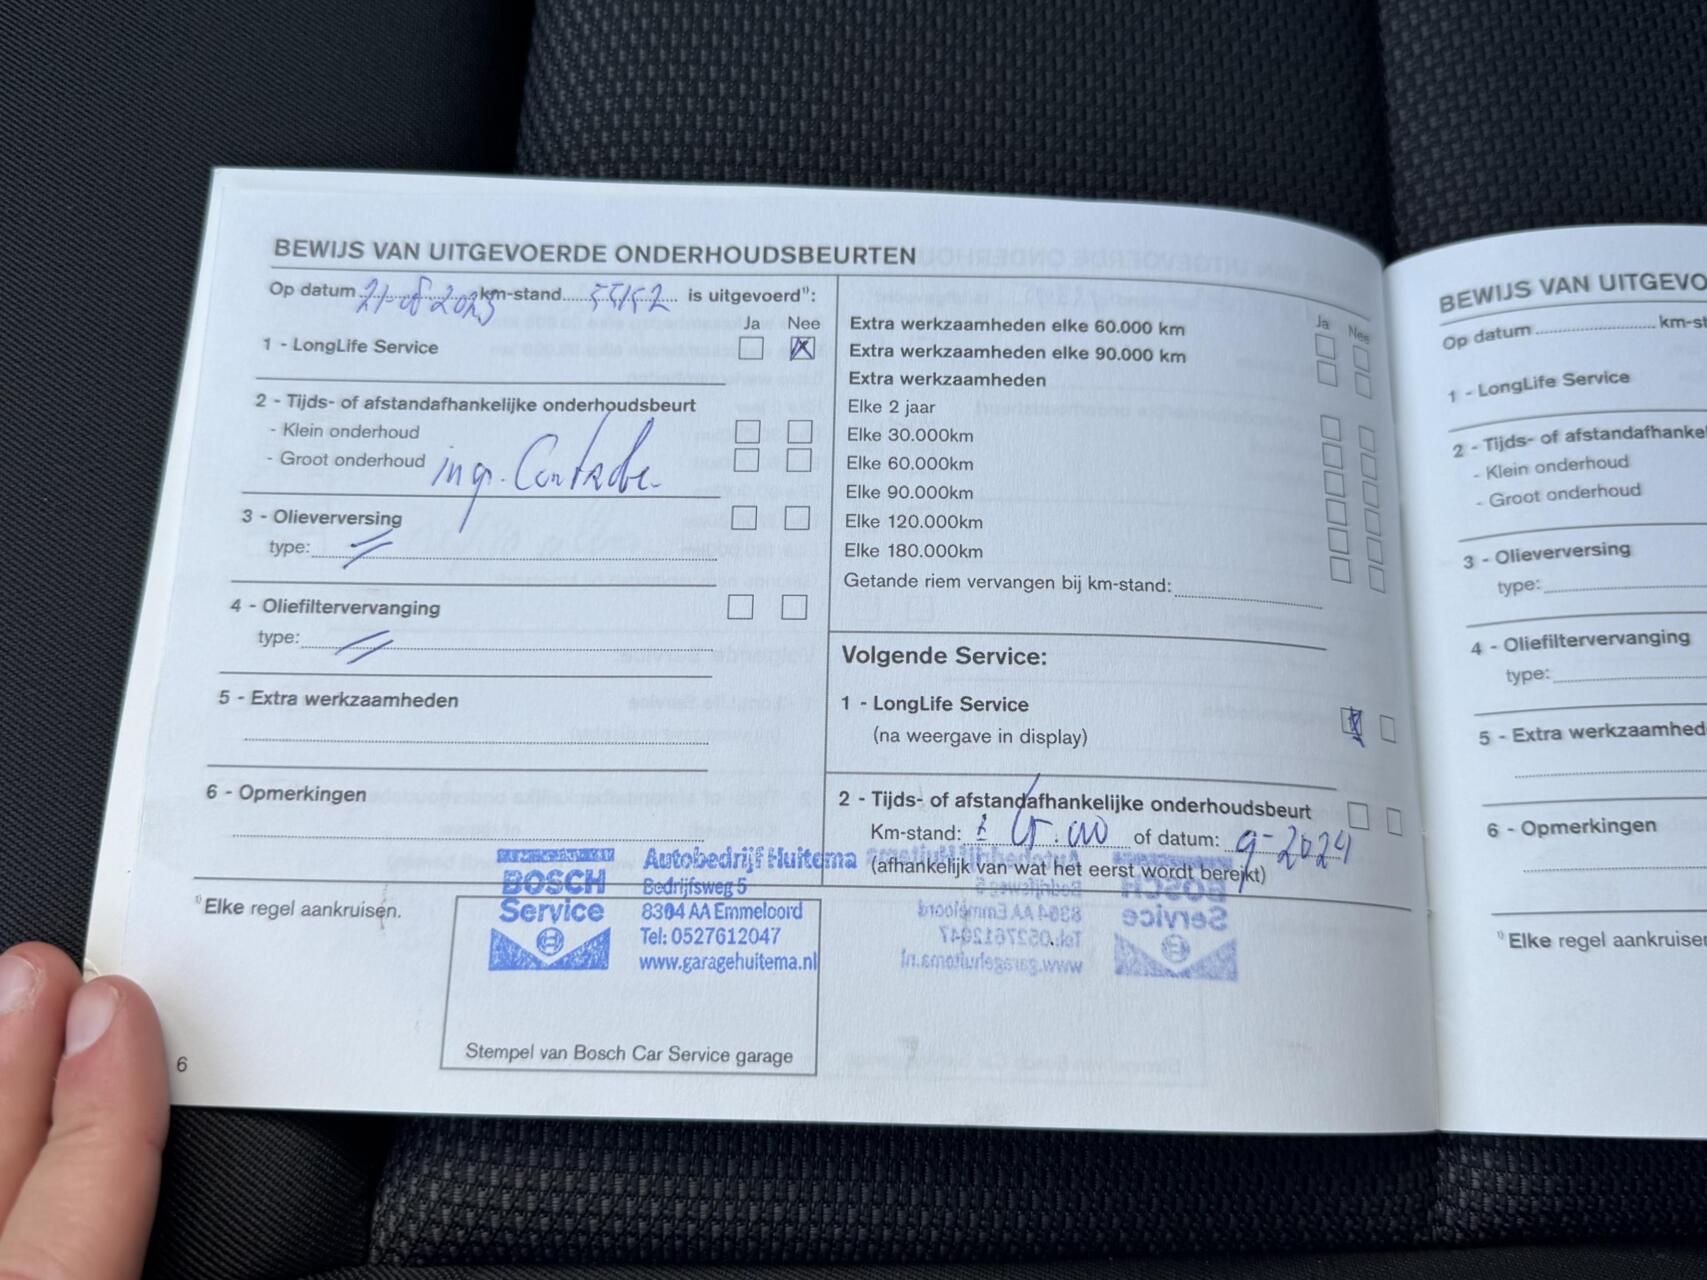 BEWIJS VAN UITGEVOERDE ONDERHOUDSBEURTEN
Op datum 21-08 2023 km-stand 55152 is uitgevoerd¹⁾:
Ja Nee
1 - LongLife Service
2 - Tijds- of afstandafhankelijke onderhoudsbeurt
- Klein onderhoud
- Groot onderhoud
3 - Olieverversing
type:
4 - Oliefiltervervanging
type:
5 - Extra werkzaamheden
6 - Opmerkingen
¹⁾Elke regel aankruisen.
Ja Nee
Extra werkzaamheden elke 60.000 km
Extra werkzaamheden elke 90.000 km
Extra werkzaamheden
Elke 2 jaar
Elke 30.000km
Elke 60.000km
Elke 90.000km
Elke 120.000km
Elke 180.000km
Getande riem vervangen bij km-stand:
Volgende Service:
1 - LongLife Service
(na weergave in display)
2 - Tijds- of afstandafhankelijke onderhoudsbeurt
Km-stand: of datum: 9-2024
(afhankelijk van wat het eerst wordt bereikt)
BOSCH
Service
Autobedrijf Huitema
Bedrijfsweg 5
8304 AA Emmeloord
Tel: 0527612047
www.garagehuitema.nl
Stempel van Bosch Car Service garage
6
BEWIJS VAN UITGEVO
Op datum km-st
1 - LongLife Service
2 - Tijds- of afstandafhanke
- Klein onderhoud
- Groot onderhoud
3 - Olieverversing
type:
4 - Oliefiltervervanging
type:
5 - Extra werkzaamhed
6 - Opmerkingen
¹⁾Elke regel aankruiser